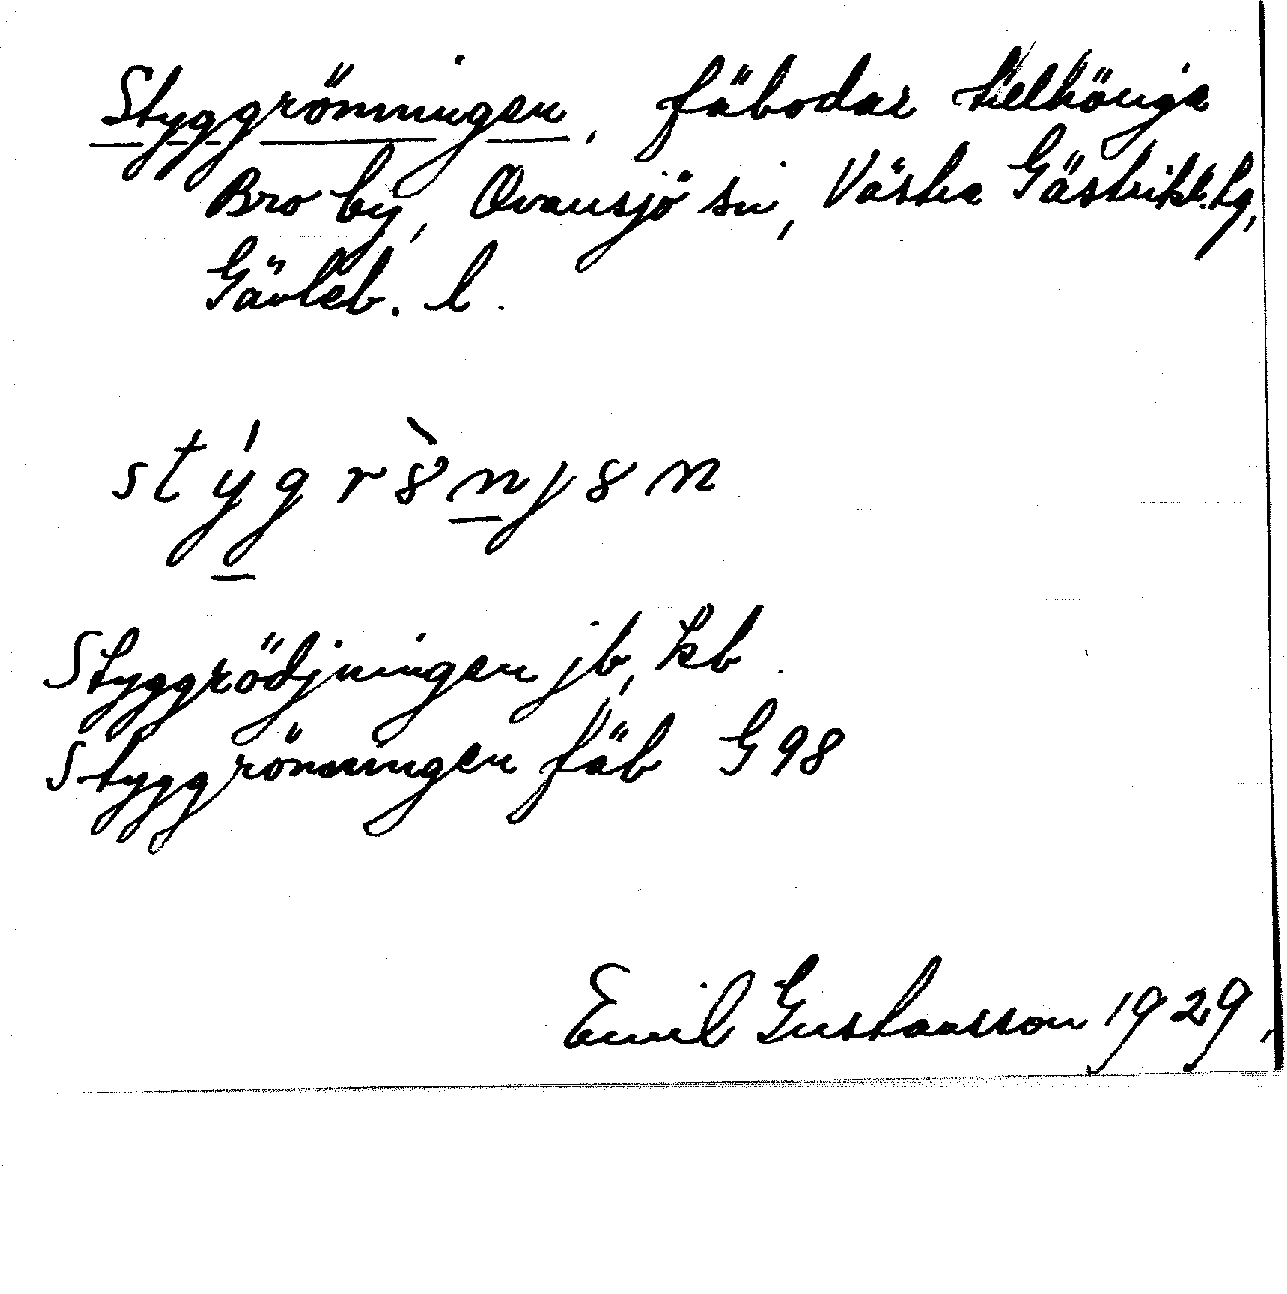 Styggrönningen, fäbodar tillhöriga
Bro by, Ovansjö sn, Västra Gästrikl. tg,
Gävleb. l.
Styggrödjningen jb, kb.
Styggrönningen fäb G 98
Emil Gustavsson 1929.